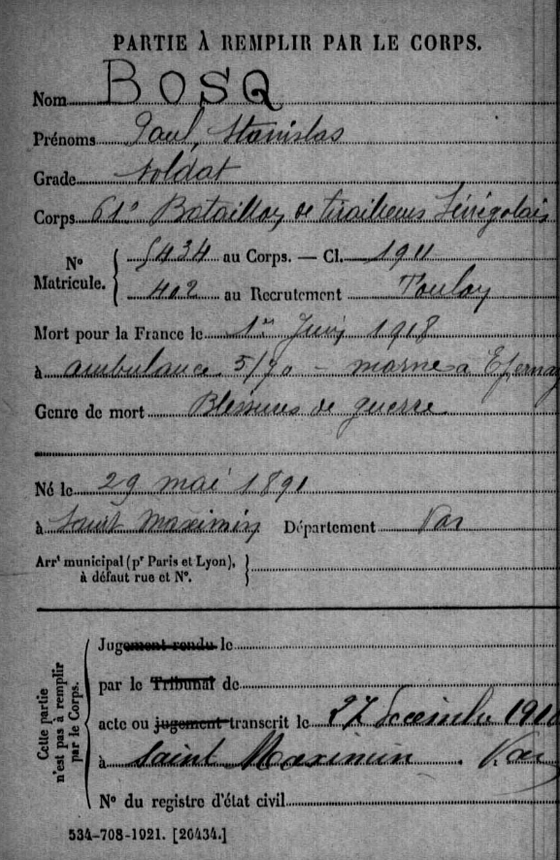 PARTIE À REMPLIR PAR LE CORPS.
Nom BOSQ
Prénoms Paul, Stanislas
Grade Soldat
Corps 61e Bataillon de tirailleurs Sénégalais
N° Matricule. 5434 au Corps. — Cl. 1911
402 au Recrutement Toulon
Mort pour la France le 1er Juin 1918
à ambulance 5/70 - marne à Epernay
Genre de mort Blessures de guerre
Né le 29 mai 1891
à Saint Maximin Département Var
Arrt municipal (pr Paris et Lyon),
à défaut rue et N°.
Cette partie n'est pas à remplir par le Corps.
Jugement rendu le
par le Tribunal de
acte ou jugement transcrit le 27 Décembre
à Saint Maximin. Var
N° du registre d'état civil
534-708-1921. [26434.]